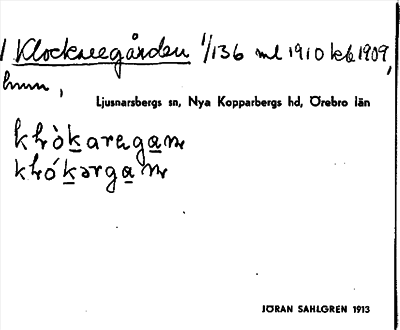 Klockaregården 1/136 ml 1910 kb 1909,
hmn,
Ljusnarsbergs sn, Nya Kopparbergs hd, Örebro län
JÖRAN SAHLGREN 1913